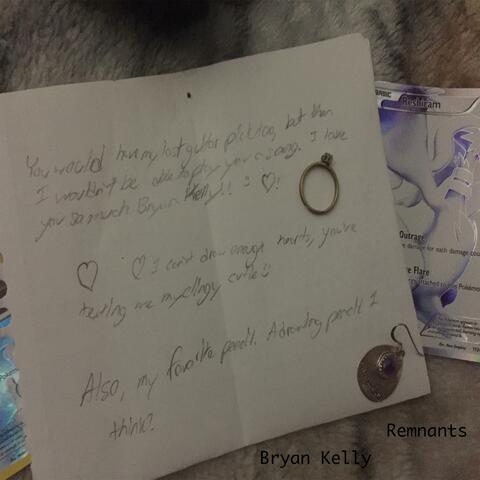 You would have my last guitar pick too, but then
I wouldn't be able to play you a song. I love
you so much Bryan Kelly!! :) ♡!
♡ ♡ I can't draw enough hearts, you're
texting me my clingy cutie :)
Also, my favorite pencil. A drawing pencil I
think?
BASIC
Reshiram
Outrage
damage for each damage cou
Flare
Remnants
Bryan Kelly